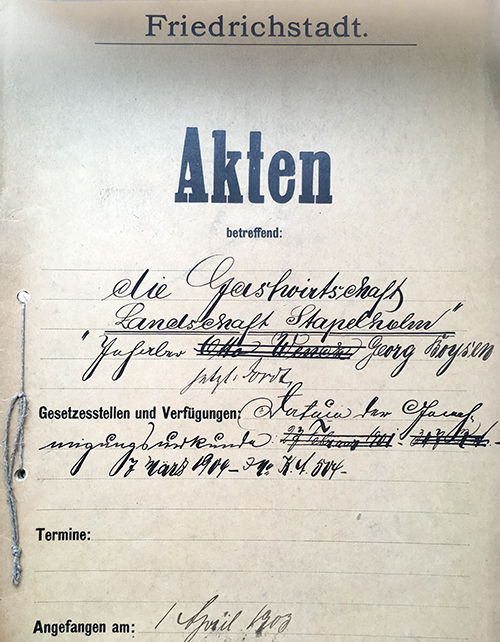 Friedrichstadt.
Akten
betreffend:
die Gastwirtschaft
Landschaft Stapelholm"
"Inhaber Otto Wencke Georg Boysen
jetzt:
Gesetzesstellen und Verfügungen: Datum der Geneh-
migungsurkunde: 23 Februar 1901-
7 März 1904- J No K.A. 504-
Termine:
Angefangen am: 1 April 1903